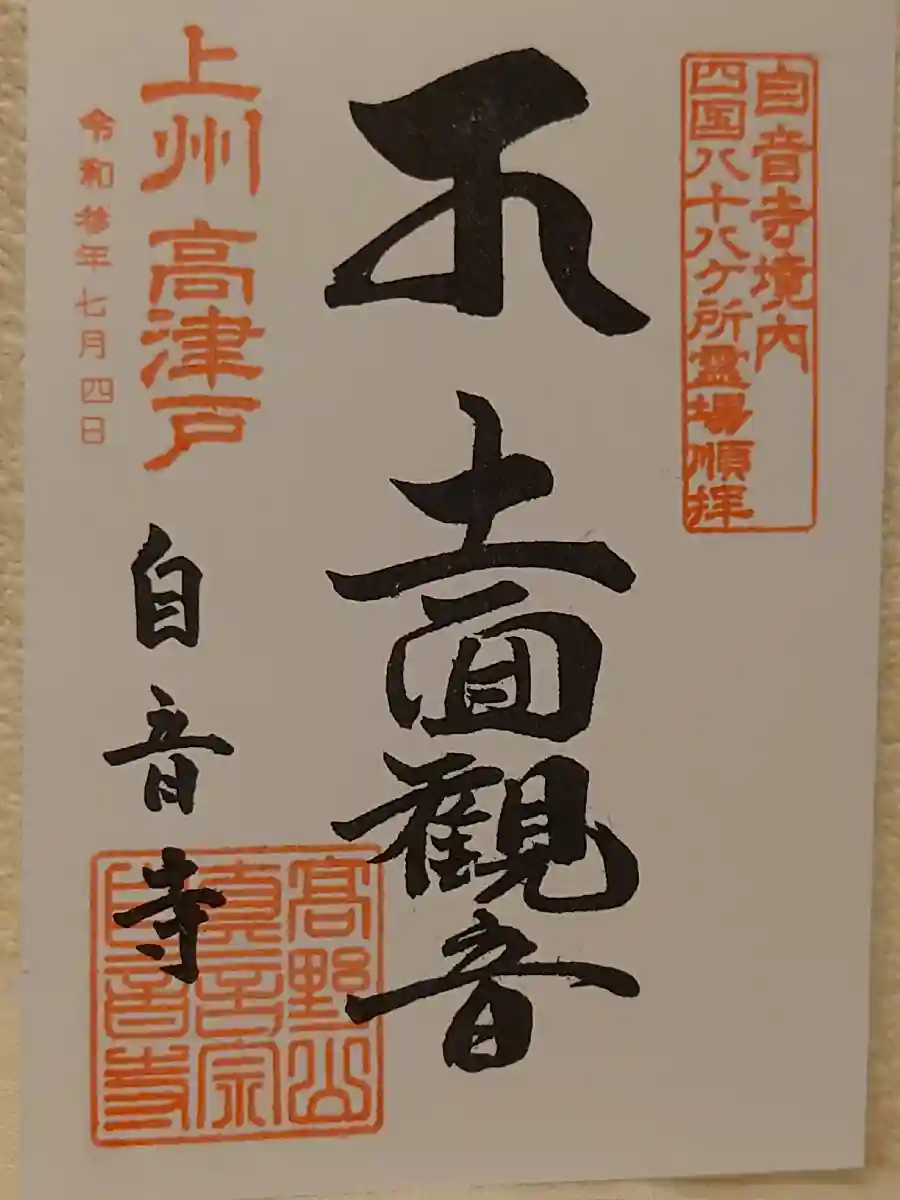 自音寺境内
四国八十八ケ所霊場順拝
十一面観音
上州 高津戸
自音寺
令和参年七月四日
髙野山
真言宗
自音寺